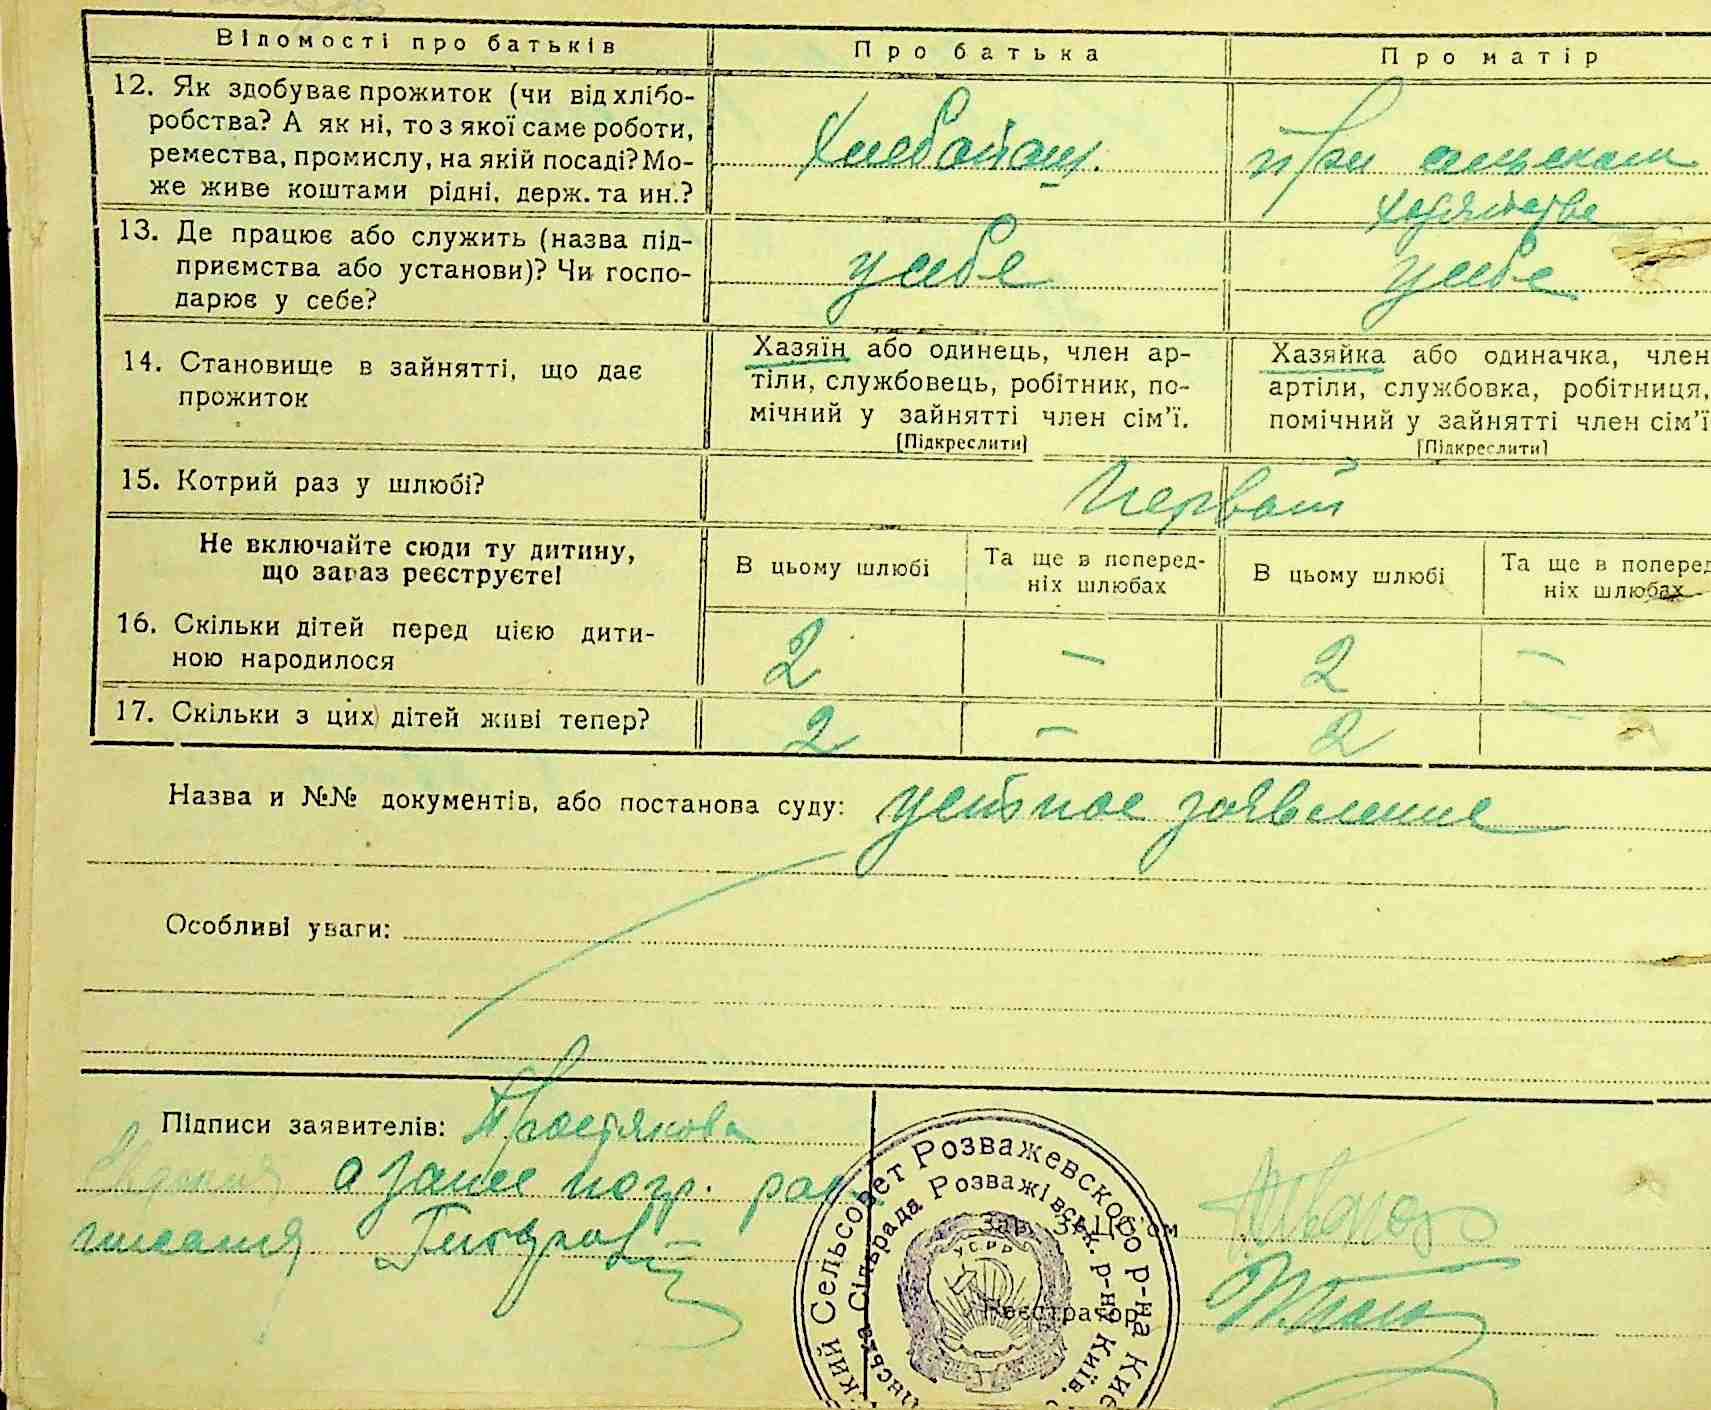 Відомості про батьків
Про батька
Про матір
12. Як здобуває прожиток (чи від хлібо-
робства? А як ні, то з якої саме роботи,
ремества, промислу, на якій посаді? Мо-
же живе коштами рідні, держ. та ин.?
Хлебопаш.
при сельском
хозяйстве
13. Де працює або служить (назва під-
приємства або установи)? Чи госпо-
дарює у себе?
у себе
у себе
14. Становище в зайнятті, що дає
прожиток
Хазяїн або одинець, член ар-
тіли, службовець, робітник, по-
мічний у зайнятті член сім'ї.
[Підкреслити]
Хазяйка або одиначка, член
артіли, службовка, робітниця,
помічний у зайнятті член сім'ї
[Підкреслити]
15. Котрий раз у шлюбі?
Первый
Не включайте сюди ту дитину,
що зараз реєструєте!
В цьому шлюбі
Та ще в поперед-
ніх шлюбах
В цьому шлюбі
Та ще в поперед
ніх шлюбах
16. Скільки дітей перед цією дити-
ною народилося
2 – 2 –
17. Скільки з цих дітей живі тепер?
2 – 2 –
Назва и №№ документів, або постанова суду: устное заявление
Особливі уваги:
Підписи заявителів:
а за нее негр. рас
писался
Зав. ЗАЦС'ом
Реєстратор
кий Сельсовет Розважевского р-на Кие
нська Сільрада Розважівськ. р-ну Київ.
УСРР